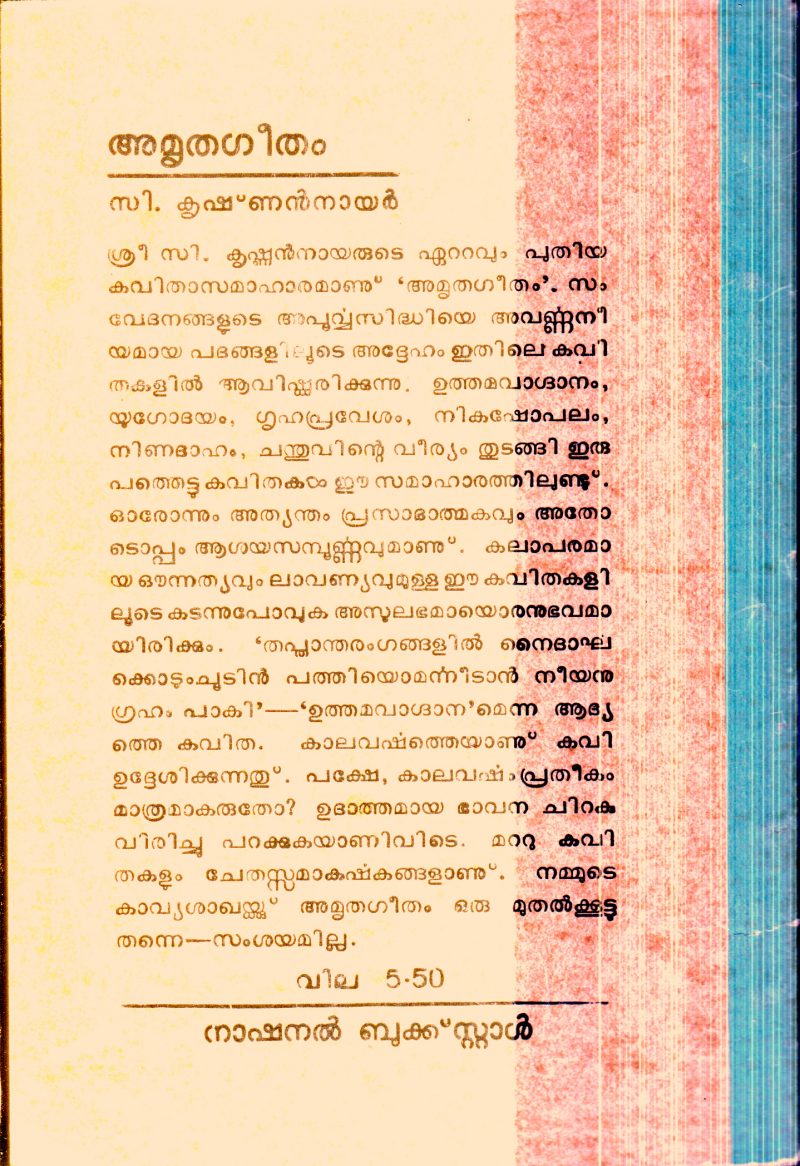 അമൃതഗീതം
സി. കൃഷ്ണൻനായർ
ശ്രീ സി. കൃഷ്ണൻനായരുടെ ഏററവും പുതിയ
കവിതാസമാഹാരമാണു് ‘അമൃതഗീതം’. സം
വേദനങ്ങളുടെ അപൂർവ്വസിദ്ധിയെ അവർണ്ണനീ
യമായ പദങ്ങളിലൂടെ അദ്ദേഹം ഇതിലെ കവി
തകളിൽ ആവിഷ്ക്കരിക്കുന്നു. ഉത്തമവാഗ്ദാനം,
യുഗോദയം, ഗൃഹപ്രവേശം, നികഷോപലം,
നിണദാഹം, ചന്തുവിന്റെ വീര്യം തുടങ്ങി ഇരു
പത്തെട്ടു കവിതകൾ ഈ സമാഹാരത്തിലുണ്ടു്.
ഓരോന്നും അത്യന്തം പ്രസാദാത്മകവും അതോ
ടൊപ്പം ആശയസമ്പൂർണ്ണവുമാണു്. കലാപരമാ
യ ഔന്നത്യവും ലാവണ്യവുമുള്ള ഈ കവിതകളി
ലൂടെ കടന്നുപോവുക അസുലഭമായൊരനുഭവമാ
യിരിക്കും. ‘തപ്താന്തരംഗങ്ങളിൽ നൈദാഘ
ക്കൊടുംചൂടിൻ പത്തിയൊമർന്നീടാൻ നീയനു
ഗ്രഹം പാകി’—‘ഉത്തമവാഗ്ദാന’മെന്ന ആദ്യ
ത്തെ കവിത. കാലവർഷത്തെയാണു് കവി
ഉദ്ദേശിക്കുന്നതു്. പക്ഷേ, കാലവർഷം പ്രതീകം
മാത്രമാകരുതോ? ഉദാത്തമായ ഭാവന ചിറകു
വിരിച്ചു പറക്കുകയാണിവിടെ. മററു കവി
തകളും ചേതസ്സമാകർഷകങ്ങളാണു്. നമ്മുടെ
കാവ്യശാഖയ്ക്കു് അമൃതഗീതം ഒരു മുതൽക്കൂട്ടു
തന്നെ—സംശയമില്ല.
വില 5·50
നാഷനൽ ബുക്ക്സ്റ്റാൾ